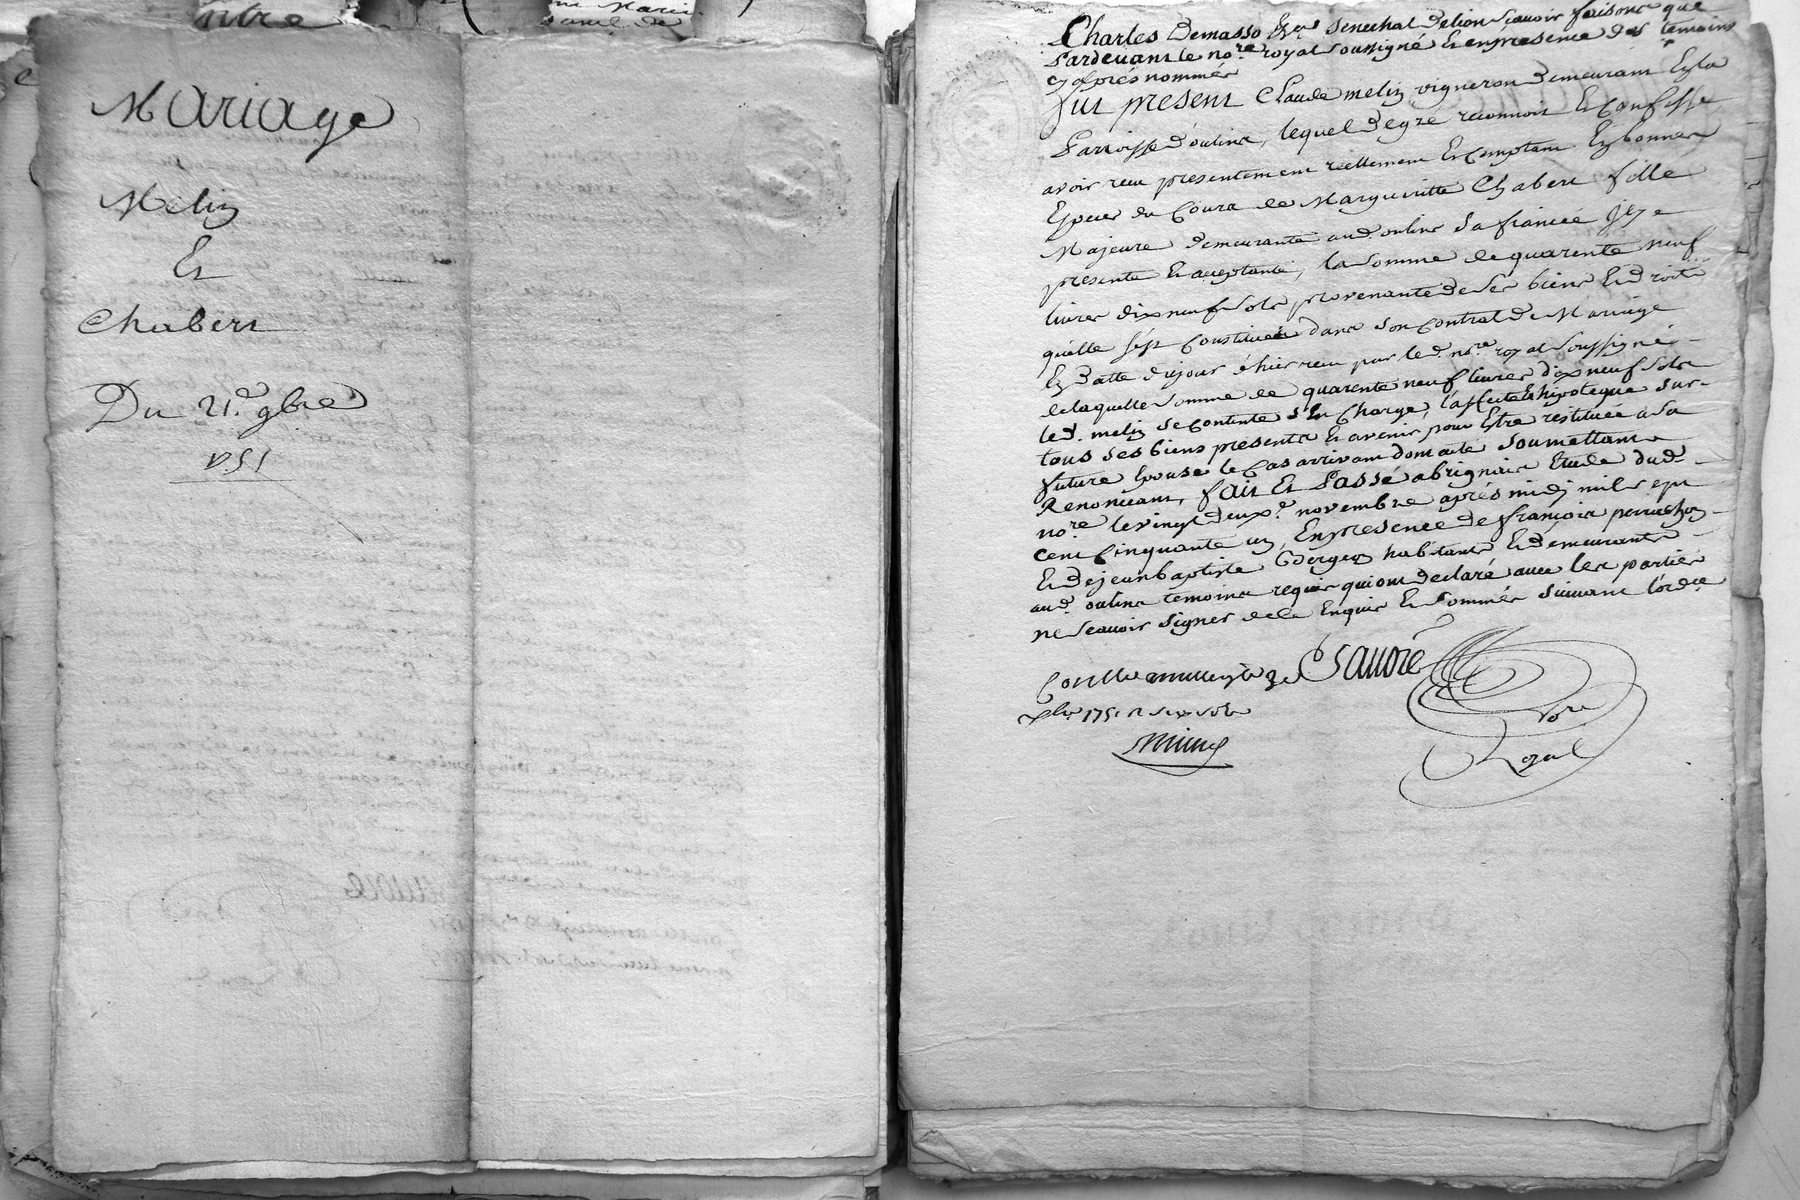 Mariage
Melin
Et
Chabert
Du 21.e 9bre
1751
Charles Demasso Senechal Delion scavoir faisons que
Pardevant le nore. royal soussigné Et enpresence des temoins
cy aprés nommés
fut present Claude melin vigneron demeurant En la
Parroisse d'oulins, lequel de gré reconnoit Et Confesse
avoir recu presentement réellement Et Comptant En bonnes
Especes du Cours de Margueritte Chabert fille
Majeure demeurante aud. oulins sa fiancée Jcy
presente Et acceptante, la somme de quarente neuf
livres dix neuf sols provenante de ses biens Et droits
quelle sést Constitués dans son Contrat de Mariage
En datte du jour d'hier recu par led. nore. royal soussigné
de laquelle somme de quarente neuf livres dix neuf sols
led. melin se contente s'En Charge, l'affecte Et hipoteque sur
tous ses biens presents Et avenir pour Estre restituée a sa
future Epouse le Cas arrivant dont acte soumettant
Renoncant, fait Et Passé a brignais Etude dud.
nore. le vingt deuxe. novembre aprés midy mil sept
cent Cinquante un, En presence de françois perrichon
Et de jean baptiste Berger habitants Et demeurants
aud. oulins temoins requis qui ont declaré avec les parties
ne scavoir signer de ce Enquis Et sommés suivant l'ordce
Conlle a
Sauvore
xbre 1751 R six sols
nore
Royal